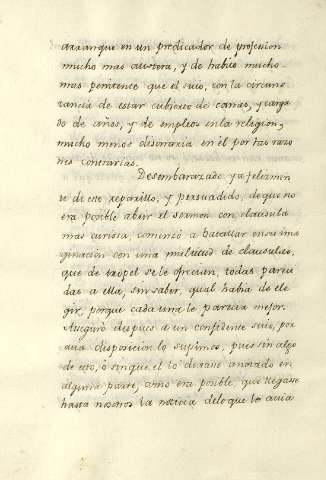 arranque en un predicador de profesion
mucho mas austera, y de habito mucho
mas penitente que el suio, con la circuns
tancia de estar cubierto de canas, y carga
do de años, y de empleos en la religion,
mucho menos disonaria en él por las razo
nes contrarias.
Desembarazado ya felizmen
te de este reparillo, y persuadido, de que no
era posible abrir el sermon con clausula
mas curiosa, comenzó a batallar en su ima
ginacion con una multitud de clausulas,
que de tropel se le ofrecian, todas pareci
das a ella, sin saber, qual habia de ele
gir, porque cada una le parecia mejor.
Aseguró despues a un confidente suio, por
cuia disposicion lo supimos, pues sin algo
de esto, o sin que el lo dexase anotado en
alguna parte, como era posible, que llegase
hasta nosotros la noticia de lo que le avia